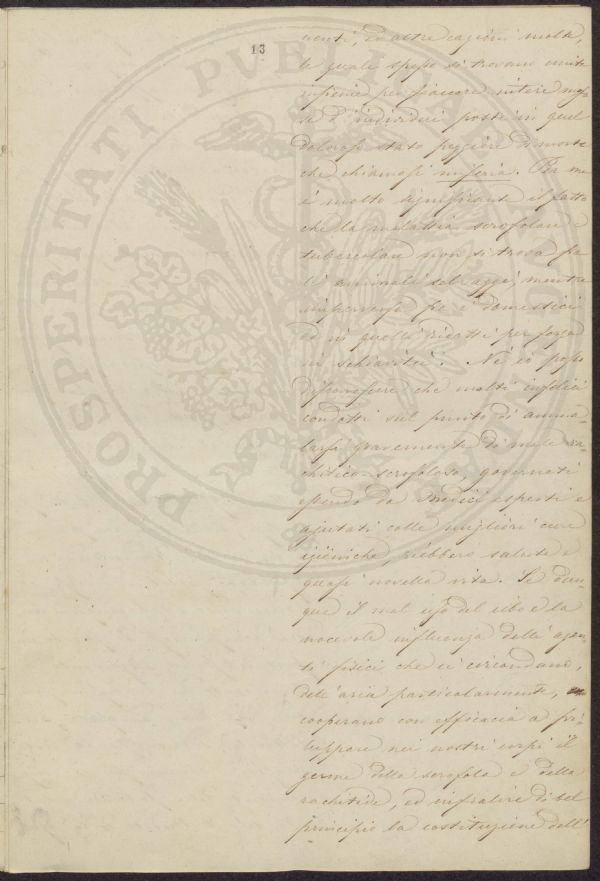 13
nenti, ed altre cagioni molte,
le quali spesso si trovano unite
insieme per fiaccare intere mas-
se d'individui poste in quel
doloroso stato peggiore di morte
che chiamasi miseria. Per me
è molto significante il fatto
che la malattia scrofolare e
tubercolare non si trova fra
gli animali selvaggi, mentre
imperversa fra i domestici
ed in quelli ridotti per forza
in schiavitù. Nè io posso
disconoscere che molti infelici
condotti sul punto di amma-
larsi gravemente di male ra-
chitico-scrofoloso, governati
essendo da Medici esperti e
ajutati colle migliori cure
igieniche, riebbero salute e
quasi novella vita. Se dun-
que il mal uso del cibo e la
nocevole influenza delli agen-
ti fisici che ci circondano,
dell'aria particolarmente,
cooperano con efficacia a svi-
luppare nei nostri corpi il
germe della scrofola e della
rachitide, ed infralire di bel
principio la costituzione dell'
PROSPERITATI PUBLICAE